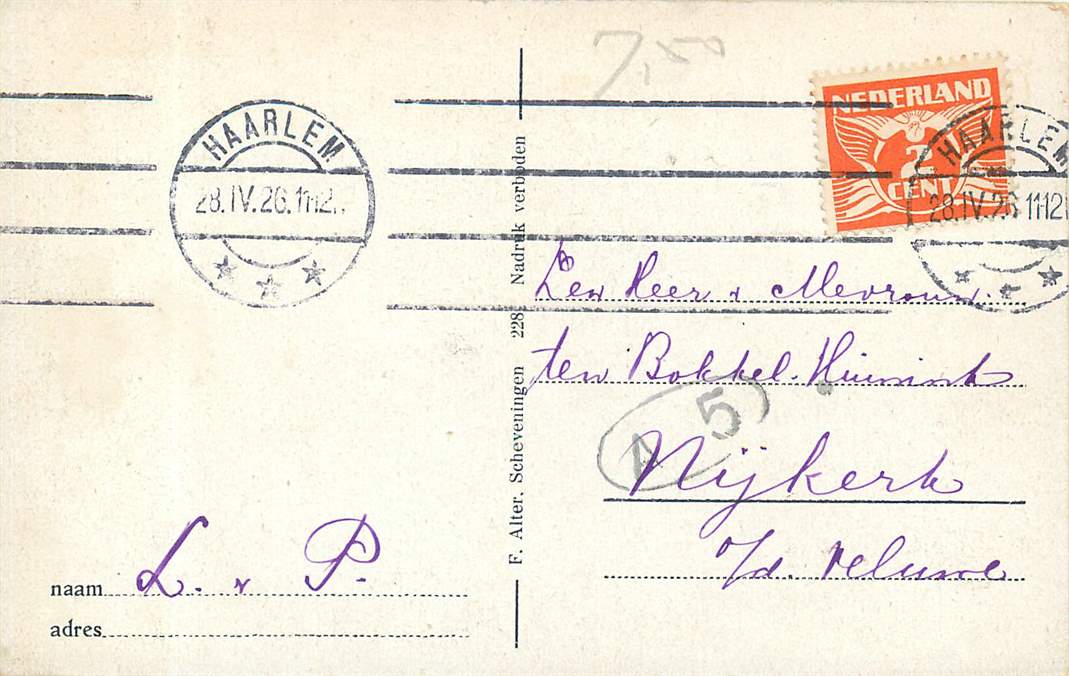 7,50
NEDERLAND
2
CENT
HAARLEM
28.IV.26.11-12
HAARLEM
28.IV.26 11-12
F. Alter. Scheveningen 228 Nadruk verboden
Den Heer & Mevrouw.
ten Bokkel. Huinink
A 5
Nijkerk
o/d. Veluwe
naam L. & P.
adres